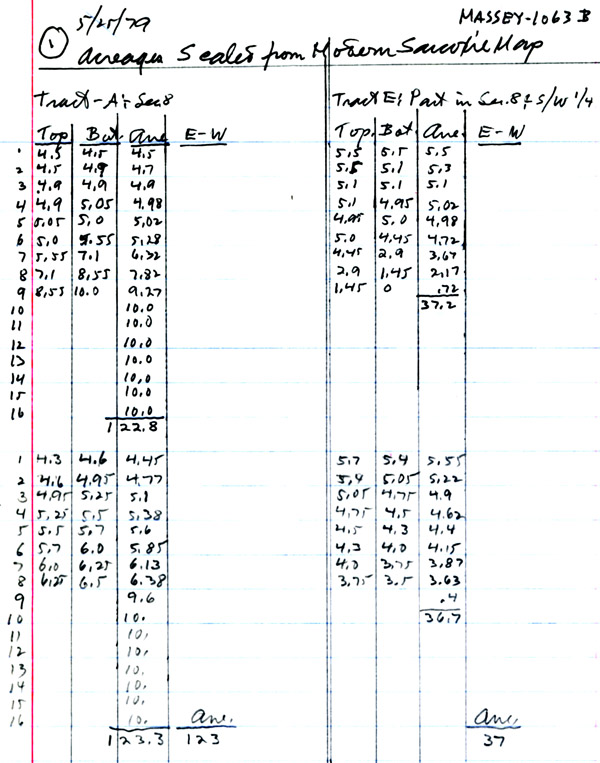 5/25/79
MASSEY-1063 B
1 Acreages Scaled from Modern Sarcoxie Map
Tract-A: Sec. 8
Top Bot Ave E-W
1 4.5 4.5 4.5
2 4.5 4.9 4.7
3 4.9 4.9 4.9
4 4.9 5.05 4.98
5 5.05 5.0 5.02
6 5.0 5.55 5.28
7 5.55 7.1 6.32
8 7.1 8.55 7.82
9 8.55 10.0 9.27
10 10.0
11 10.0
12 10.0
13 10.0
14 10.0
15 10.0
16 10.0
122.8
1 4.3 4.6 4.45
2 4.6 4.95 4.77
3 4.95 5.25 5.1
4 5.25 5.5 5.38
5 5.5 5.7 5.6
6 5.7 6.0 5.85
7 6.0 6.25 6.13
8 6.25 6.5 6.38
9 9.6
10 10.
11 10.
12 10.
13 10.
14 10.
15 10.
16 10. Ave.
123.3 123
Tract E: Part in Sec. 8 & S/W 1/4
Top. Bot. Ave E-W
5.5 5.5 5.5
5.5 5.1 5.3
5.1 5.1 5.1
5.1 4.95 5.02
4.95 5.0 4.98
5.0 4.45 4.72
4.45 2.9 3.67
2.9 1.45 2.17
1.45 0 .72
37.2
5.7 5.4 5.55
5.4 5.05 5.22
5.05 4.75 4.9
4.75 4.5 4.62
4.5 4.3 4.4
4.3 4.0 4.15
4.0 3.75 3.87
3.75 3.5 3.63
.4
36.7
Ave.
37